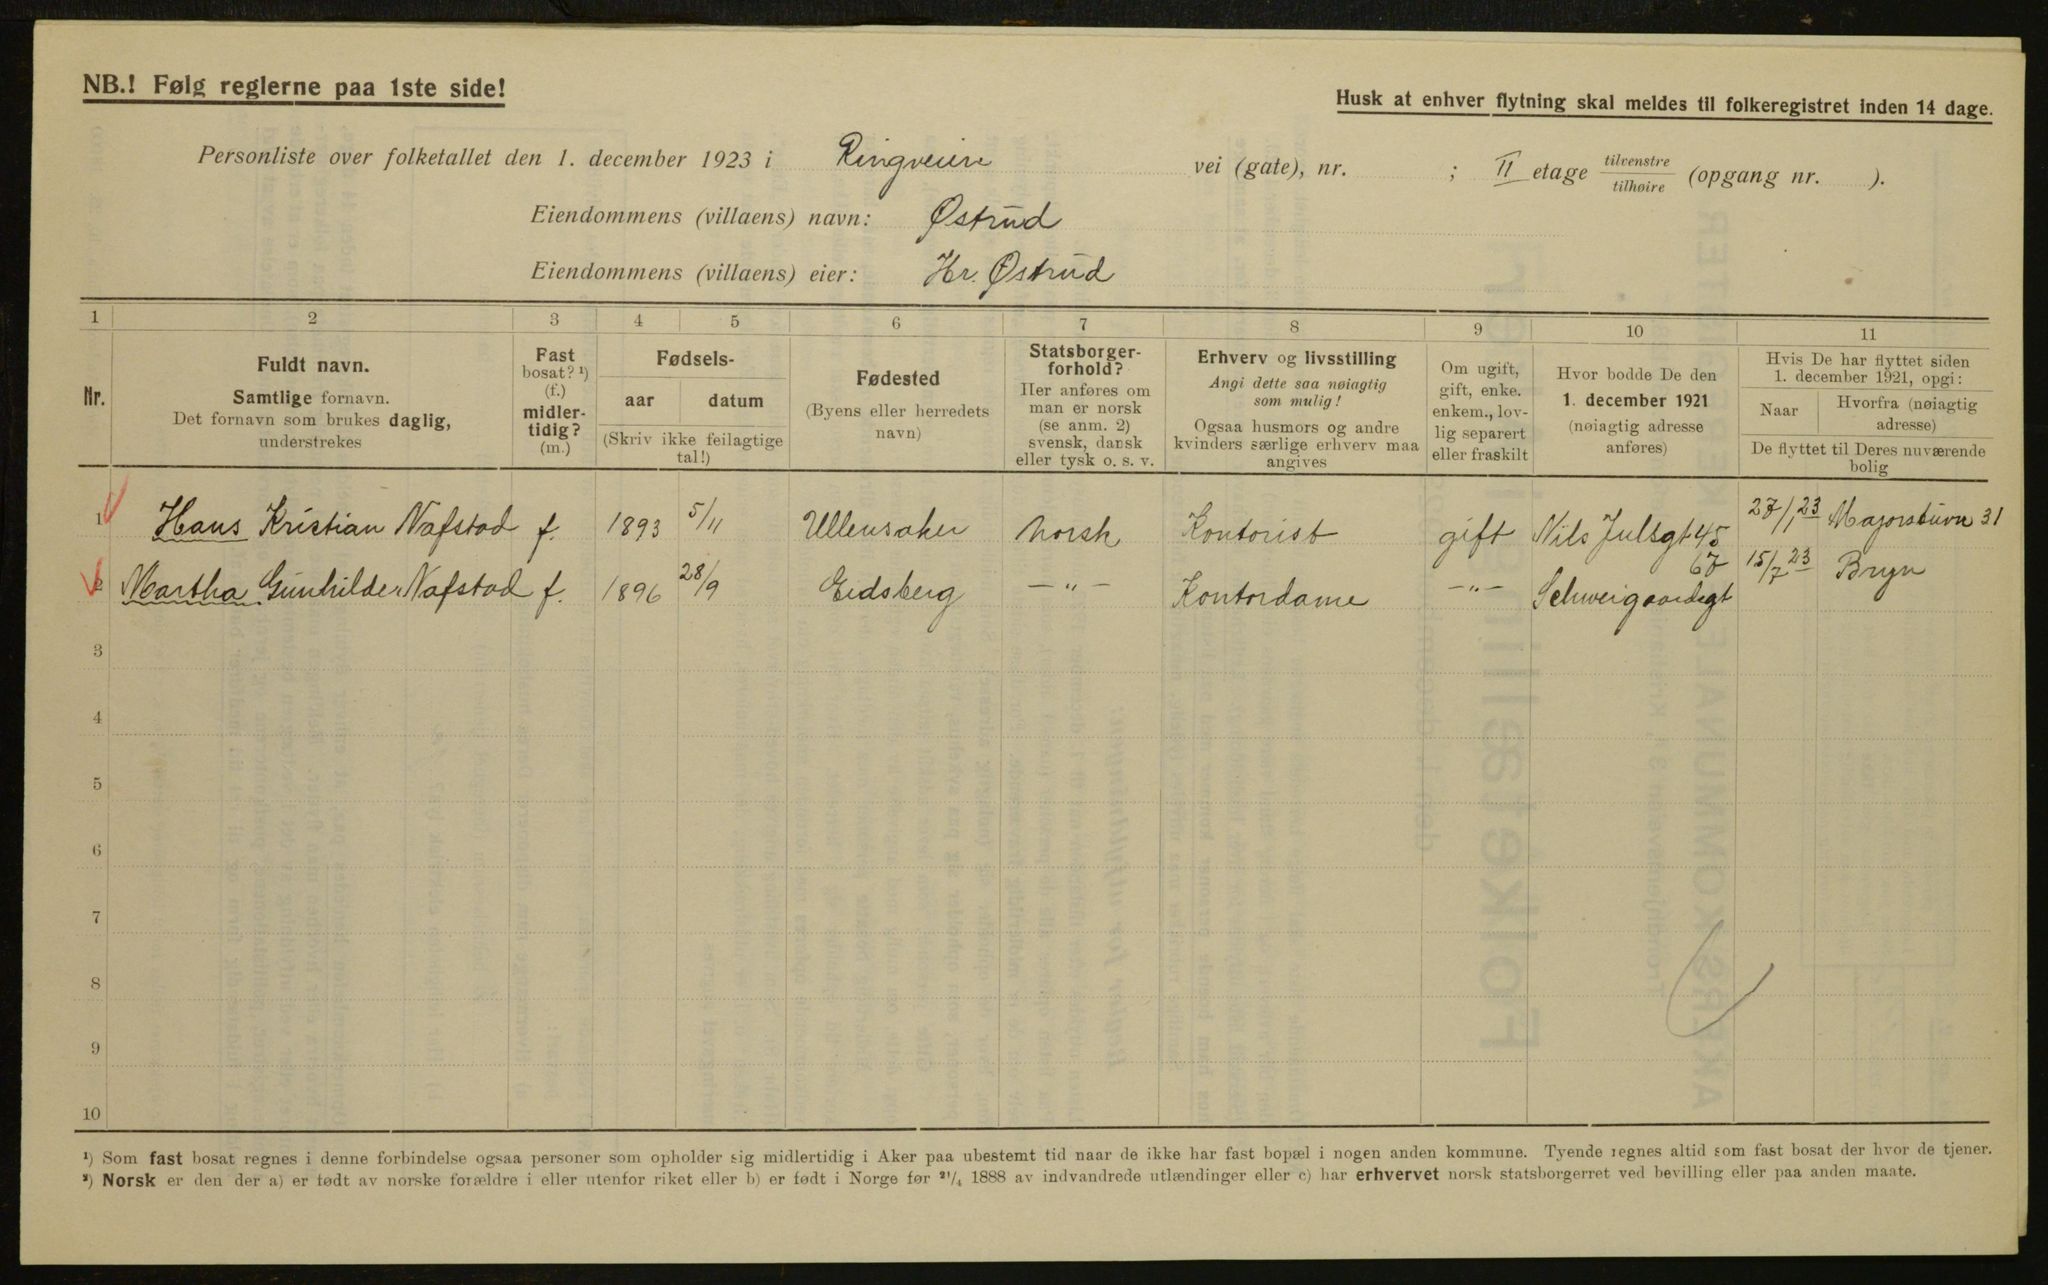 NB.! Følg reglerne paa 1ste side!
Husk at enhver flytning skal meldes til folkeregistret inden 14 dage.
Personliste over folketallet den 1. december 1923 i Ringveien vei (gate), nr. ; II etage tilvenstre/tilhøire (opgang nr. ).
Eiendommens (villaens) navn: Østrud
Eiendommens (villaens) eier: Hr. Østrud
1 2 3 4 5 6 7 8 9 10 11
Nr.
Fuldt navn.
Samtlige fornavn.
Det fornavn som brukes daglig,
understrekes
Fast
bosat? ¹)
(f.)
midler-
tidig?
(m.)
Fødsels-
aar datum
(Skriv ikke feilagtige
tal!)
Fødested
(Byens eller herredets
navn)
Statsborger-
forhold?
Her anføres om
man er norsk
(se anm. 2)
svensk, dansk
eller tysk o. s. v.
Erhverv og livsstilling
Angi dette saa nøiagtig
som mulig!
Ogsaa husmors og andre
kvinders særlige erhverv maa
angives
Om ugift,
gift, enke.
enkem., lov-
lig separert
eller fraskilt
Hvor bodde De den
1. december 1921
(nøiagtig adresse
anføres)
Hvis De har flyttet siden
1. december 1921, opgi:
Naar Hvorfra (nøiagtig
adresse)
De flyttet til Deres nuværende
bolig
1 Hans Kristian Nafstad f. 1893 5/11 Ullensaker Norsk Kontorist gift Nils Julsgt 45 27/1 23 Majorstuvn 31
2 Martha Gunhilde Nafstad f. 1896 28/9 Eidsberg —"— Kontordame —"— Schweigaardsgt 67 15/7 23 Bryn
3
4
5
6
7
8
9
10
¹) Som fast bosat regnes i denne forbindelse ogsaa personer som opholder sig midlertidig i Aker paa ubestemt tid naar de ikke har fast bopæl i nogen anden kommune. Tyende regnes altid som fast bosat der hvor de tjener.
²) Norsk er den der a) er født av norske forældre i eller utenfor riket eller b) er født i Norge før ²¹/₄ 1888 av indvandrede utlændinger eller c) har erhvervet norsk statsborgerret ved bevilling eller paa anden maate.